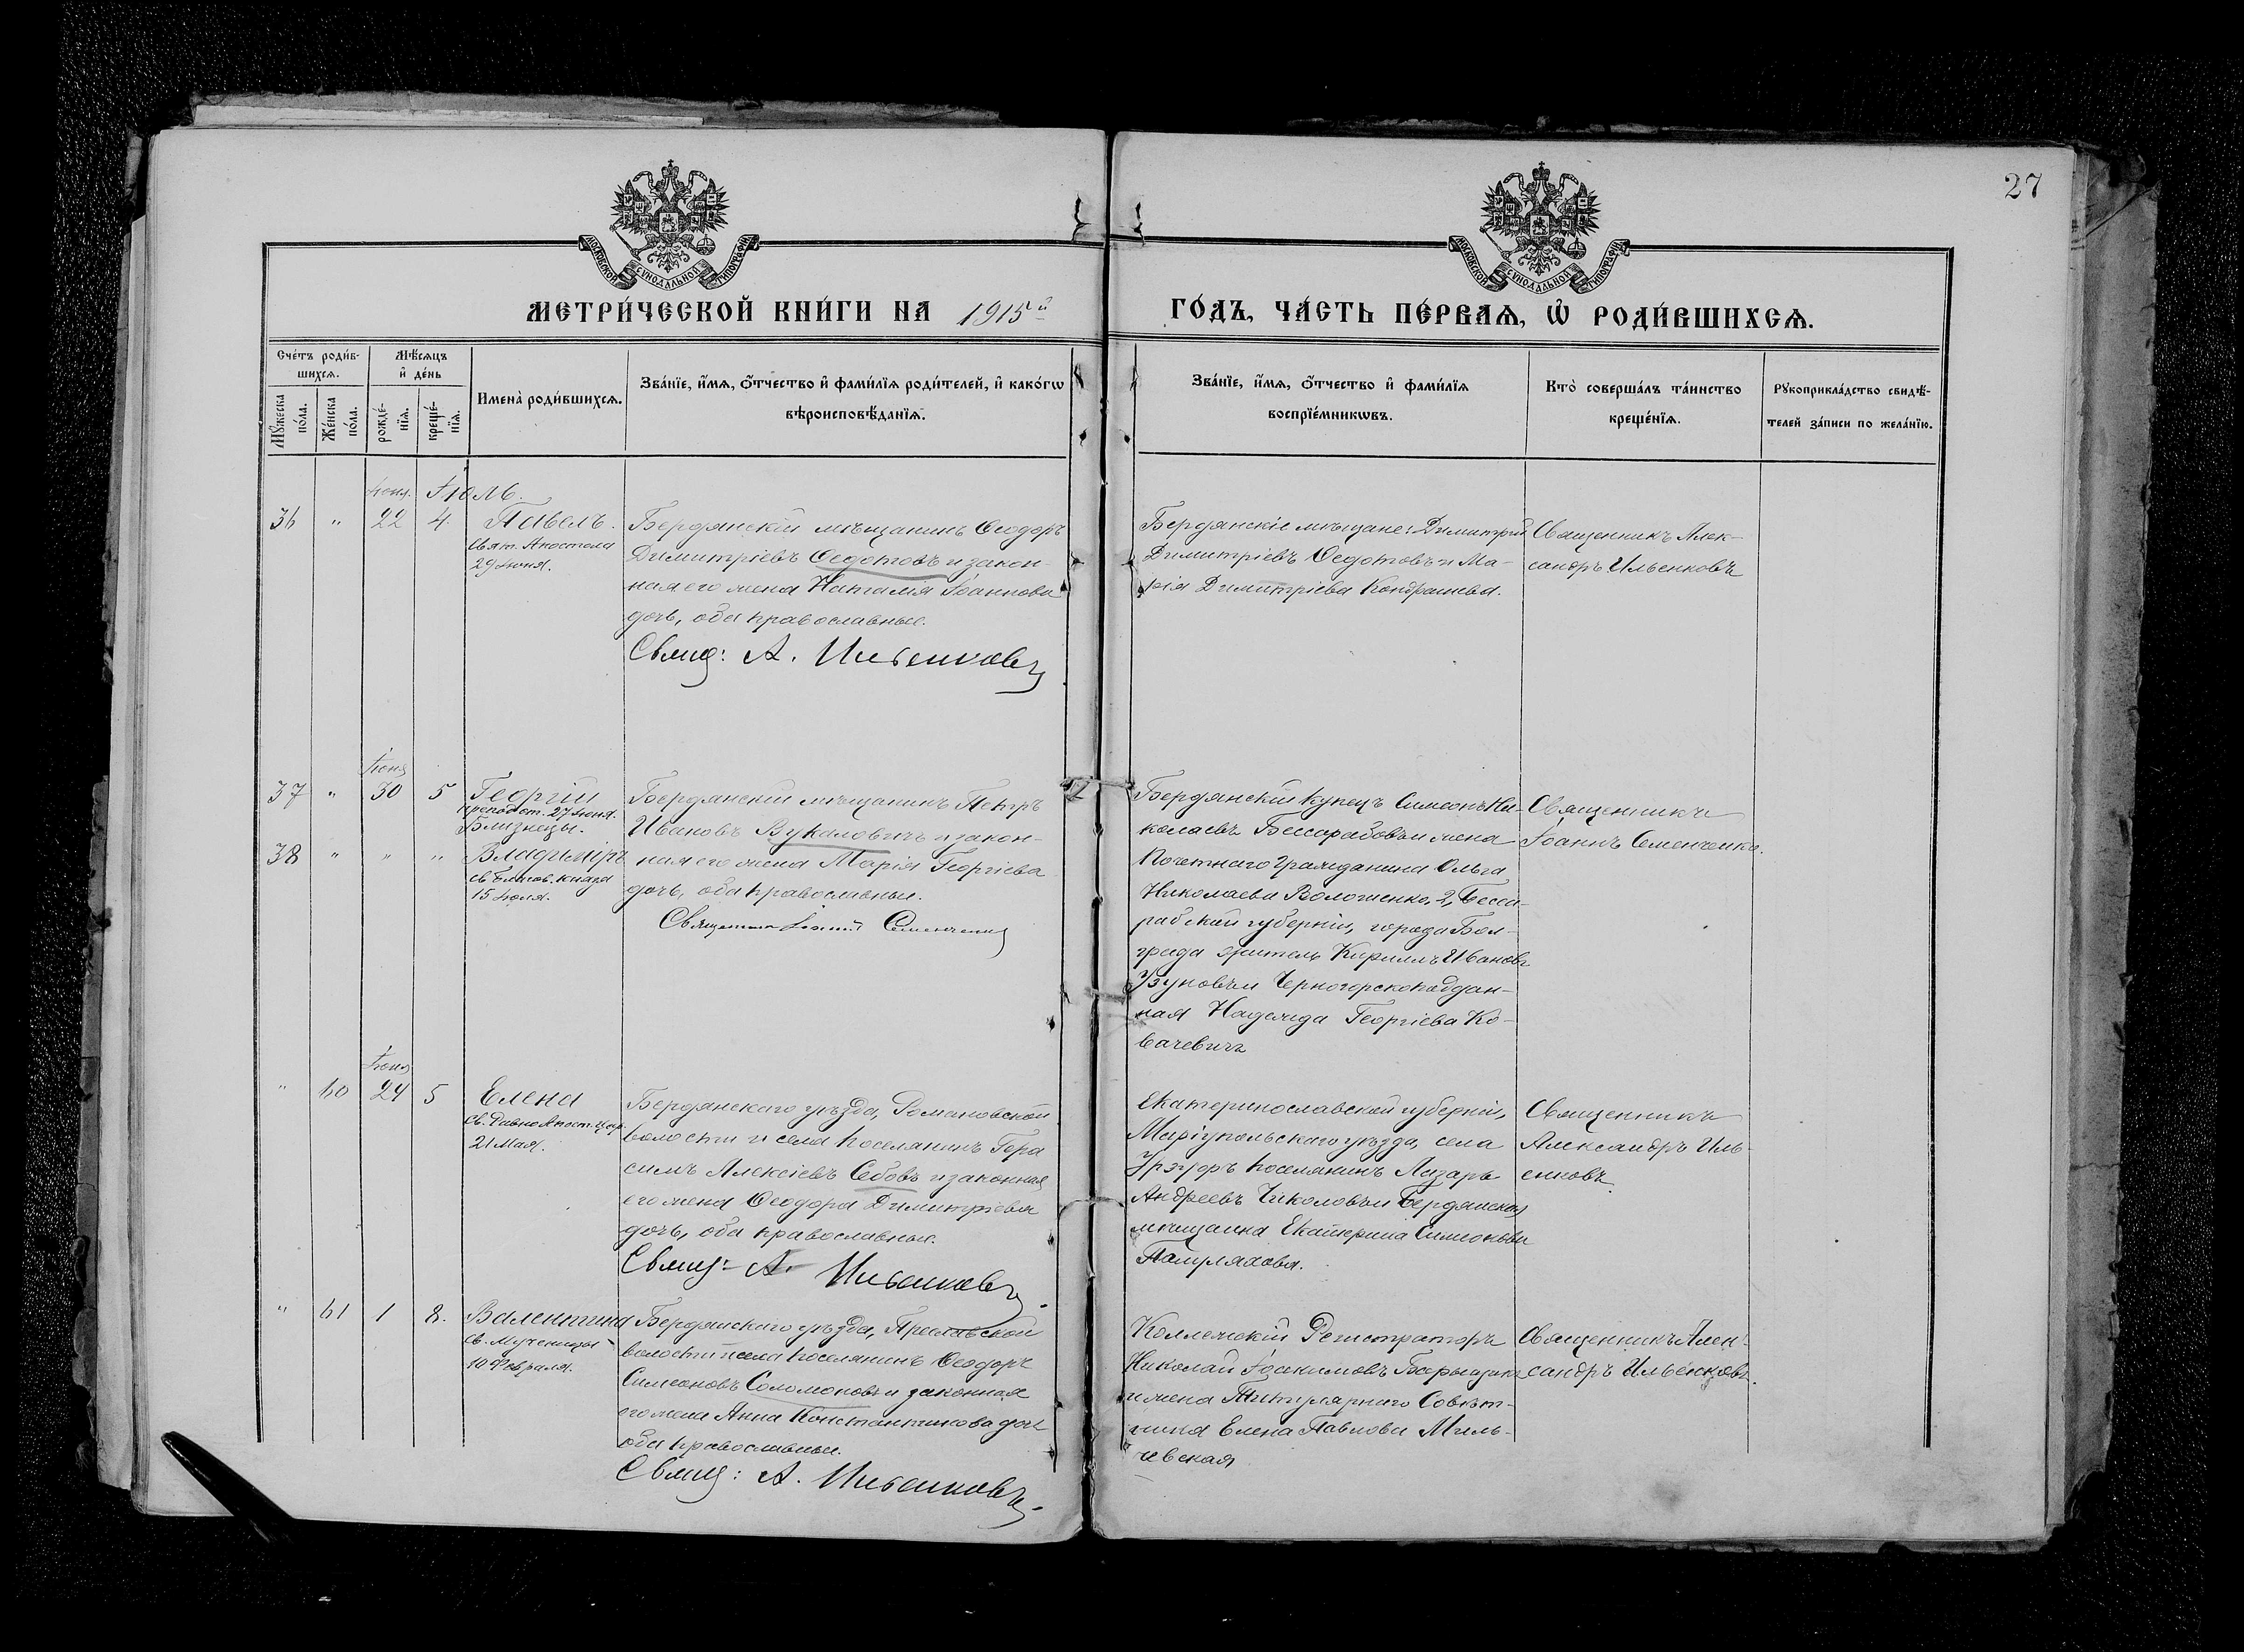 27
МОСКОВСКОЙ СѴНОДАЛЬНОЙ ТИПОГРАФІИ
МОСКОВСКОЙ СѴНОДАЛЬНОЙ ТИПОГРАФІИ
МЕТРИ́ЧЕСКОЙ КНИ́ГИ НА 1915й ГО́ДЪ, ЧА́СТЬ ПЕ́РВАѦ, Ѽ РОДИ́ВШИХСѦ.
Сче́тъ роди́в-
шихсѧ.
Мꙋ́жеска по́ла.
Же́нска по́ла.
Мѣ́сѧцъ
и҆ де́нь
рожде́-
нїѧ.
креще́-
нїѧ.
Имена̀ роди́вшихсѧ.
Зва́нїе, и҆́мѧ, о҆́тчество и҆ фами́лїѧ роди́телей, и҆ како́гѡ
вѣроисповѣ́данїѧ.
Зва́нїе, и҆́мѧ, о҆́тчество и҆ фами́лїѧ
воспрїе́мникѡвъ.
Кто̀ соверша́лъ та́инство
креще́нїѧ.
Рꙋкоприкла́дство свидѣ́-
телей за́писи по жела́нїю.
Іюня. Іюль.
36 " 22 4. Павелъ.
Свят. Апостола
29 Іюня.
Бердянскій мѣщанинъ Ѳеодоръ
Димитріевъ Ѳедотовъ и закон-
ная его жена Наталія Іоаннова
дочь, оба православные.
Свящ: А. Ильенковъ
Бердянскіе мѣщане: Димитрій
Димитріевъ Ѳедотовъ и Ма-
рія Димитріева Кондрашева.
Священникъ Алек-
сандръ Ильенковъ
Іюня
37 " 30 5 Георгій
преподоб. 27 Іюня.
Близнецы.
38 " " " Владиміръ
св. благов. князя
15 Іюля.
Бердянскій мѣщанинъ Петръ
Ивановъ Вукаловичъ и закон-
ная его жена Марія Георгіева
дочь, оба православные.
Священникъ Іоаннъ Семенченко
Бердянскій купецъ Симеонъ Ни-
колаевъ Бессарабовъ и жена
Почетнаго Гражданина Ольга
Николаева Вологиенко, 2, Бесса-
рабской губерніи, города Бол-
града житель Кириллъ Ивановъ
Узуновъ и Черногорскоподдан-
ная Надежда Георгіева Ко-
вачевичъ
Священникъ
Іоаннъ Семенченко.
Іюня
" 60 24 5 Елена
Св. РавноАпост. цар.
21 Мая.
Бердянскаго уѣзда, Романовской
волости и села поселянинъ Гера
симъ Алексіевъ Сѣбовъ и законная
его жена Ѳеодора Димитріева
дочь, оба православные.
Свящ: А. Ильенковъ.
Екатеринославской губерніи,
Маріупольскаго уѣзда, села
Урзуфъ поселянинъ Лазарь
Андреевъ Чиколовъ и Бердянская
мѣщанка Екатерина Симеонова
Священникъ
Александръ Иль-
енковъ.
" 61 1 8. Валентина
св. Мученицы
10 Февраля.
Бердянскаго уѣзда, Преславской
волости и села поселянинъ Ѳеодоръ
Симеоновъ Соломоновъ и законная
его жена Анна Константинова дочь
оба православные.
Свящ: А. Ильенковъ.
Коллежскій Регистраторъ
Николай Іоакимовъ
и жена Титулярнаго Совѣт-
ника Елена Павлова Миль-
чевская
Священникъ Алек-
сандръ Ильенковъ.